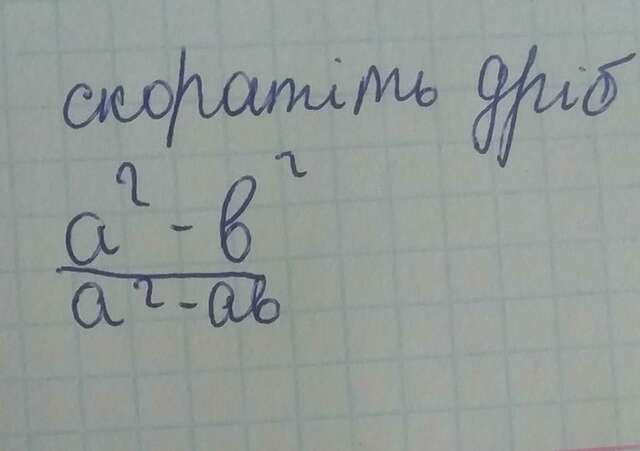 скоратіть дріб
a² - в²
a² - aв